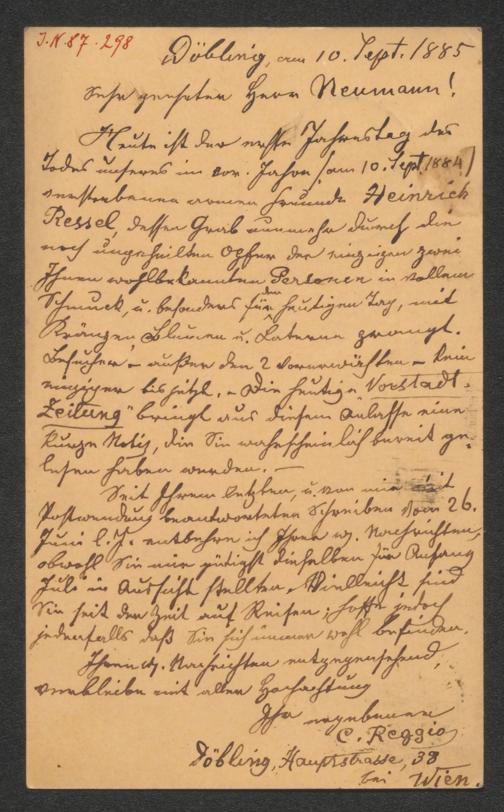 I.N. 87.298
Döbling, am 10. Sept. 1885
Sehr geehrter Herr Neumann!
Heute ist der erste Jahrestag des
Todes unseres im vor. Jahre (am 10. Sept. 1884)
verstorbenen armen Freundes Heinrich
Ressel, dessen Grab nunmehr durch die
noch ungeheilten Opfer der einzigen zwei
Ihnen wohlbekannten Personen in vollem
Schmuck, u. besonders für den heutigen Tag, mit
Kränzen, Blumen u. Laterne prangt.
Besucher – außer den 2 vorerwähnten – kein
einziger bis jetzt. – Die heutige "Vorstadt-
Zeitung" bringt aus diesem Anlasse eine
kurze Notiz, die Sie wahrscheinlich bereits ge-
lesen haben werden. –
Seit Ihrem letzten, u. von mir mit
Postwendung beantworteten Schreiben vom 26.
Juni l. J. entbehre ich Ihrer w. Nachrichten,
obwohl Sie mir gütigst dieselben für Anfang
Juli in Aussicht stellten. Vielleicht sind
Sie seit der Zeit auf Reisen; hoffe jedoch
jedenfalls daß Sie sich immer wohl befinden.
Ihren w. Nachrichten entgegensehend,
verbleibe mit aller Hochachtung
Ihr ergebener
C. Reggio
Döbling, Hauptstrasse, 38
bei Wien.